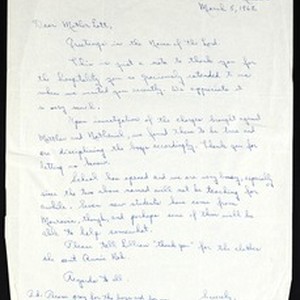 March 5, 1968
Dear Mother Lott,
Greetings in the Name of the Lord.
This is just a note to thank you for
the hospitality you so graciously extended to me
when we visited you recently. We appreciate it
so very much.
Upon investigation of the charges brought against
and Nathaniel, we found them to be true and
are disciplining the boys accordingly. Thank you for
letting us know.
School has opened and we are very busy, especially
since the two above named will not be teaching for
awhile. Seven new students have come from
Monrovia, though, and perhaps some of them will be
able to help somewhat.
Please tell Lillian "thank you" for the clothes
she sent Annie Bell.
Regards to all
P.S. Please pray for the boys and
Sincerely,